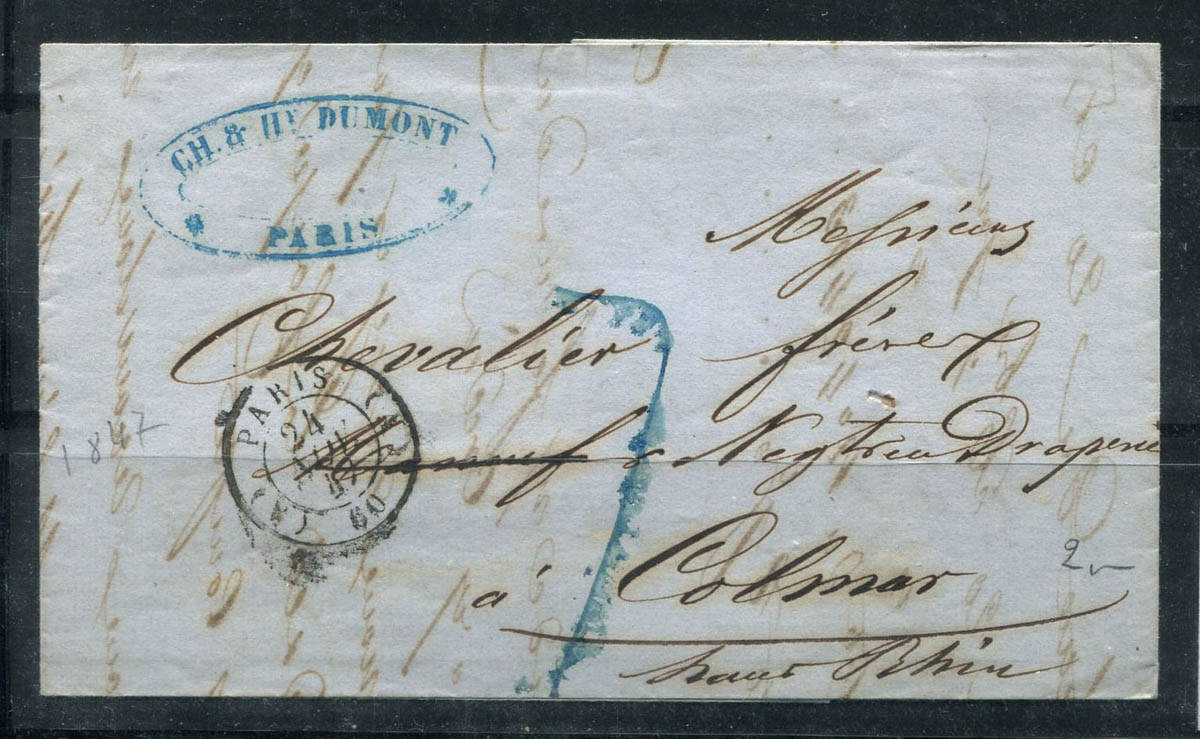 CH. & HY DUMONT
PARIS
Messieurs
Chevalier frères
Negt en Draperie
à Colmar
haut Rhin
PARIS
24
60
7
1847
2